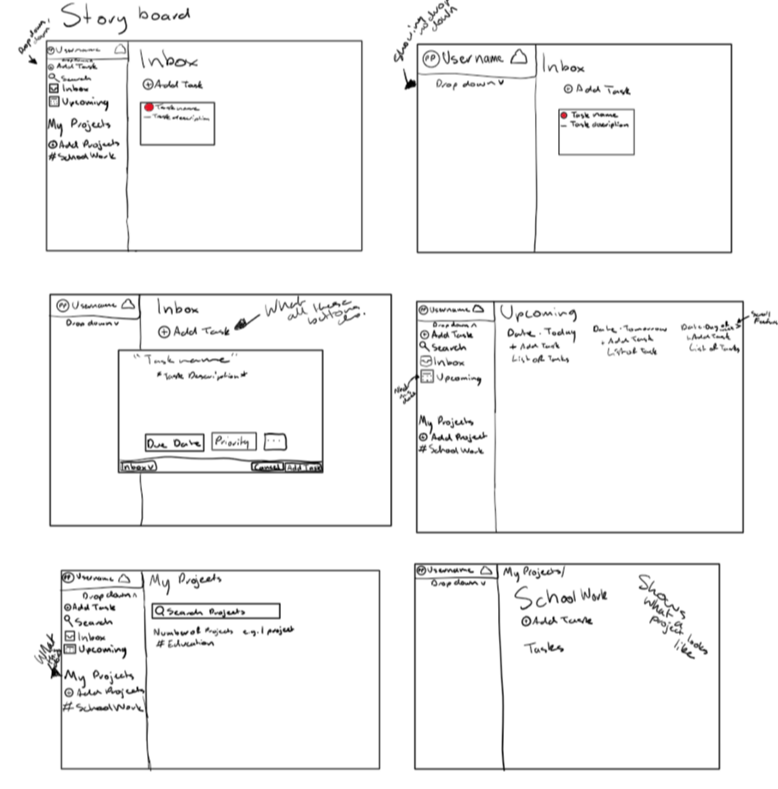 Story board
Drop down,
down
PP Username
Add Task
Search
Inbox
Upcoming
My Projects
Add Projects
#SchoolWork
Inbox
Add Task
Task name
- Task description
Showing
no drop
down
PP Username
Drop down v
Inbox
Add Task
Task name
- Task description
PP Username
Drop down v
Inbox
Add Task
What
all these
buttons
do.
"Task name"
*Task Description*
Due Date
Priority
...
Inbox v
Cancel
Add Task
PP Username
Drop down ^
Add Task
Search
Inbox
Upcoming
My Projects
Add Project
#SchoolWork
Upcoming
Date · Today
+ Add Task
List of Tasks
Date · Tomorrow
+ Add Task
List of Task
+ Add Task
List of Tasks
PP Username
Drop down ^
Add Task
Search
Inbox
Upcoming
My Projects
Add Projects
#SchoolWork
My Projects
Search Projects
Number of Projects e.g. 1 project
# Education
PP Username
Drop down v
My Projects/
School Work
Add Task
Tasks
Shows
what a
project looks
like